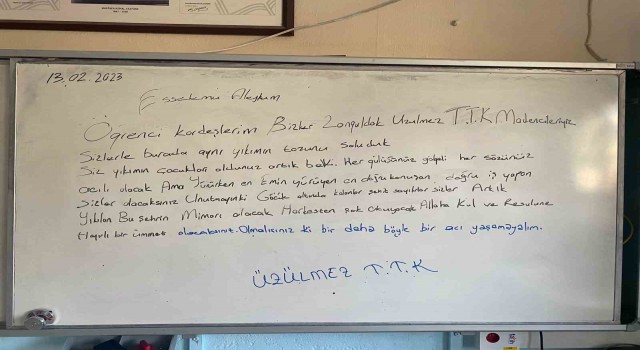 13.02.2023
Esselamu Aleyküm
Öğrenci Kardeşlerim Bizler Zonguldak Üzülmez T.T.K Madencileriyiz
Sizlerle burada aynı yıkımın tozunu soluduk
Siz yıkımın çocukları oldunuz artık bak. Her gülüşünüz gölgeli her sözünüz
acılı olacak Ama Yürürken en Emin yürüyen en doğru konuşan doğru iş yapan
Sizler olacaksınız Unutmayınki Göçük altında kalanlar şehit sayılırlar Sizler Artık
Yıkılan Bu Şehrin Mimarı olacak Herkesten çok Okuyacak Allaha Kul ve Resulune
Hayırlı bir ümmet olacaksınız. Olmalısınız ki bir daha böyle bir acı yaşamayalım.
ÜZÜLMEZ T.T.K